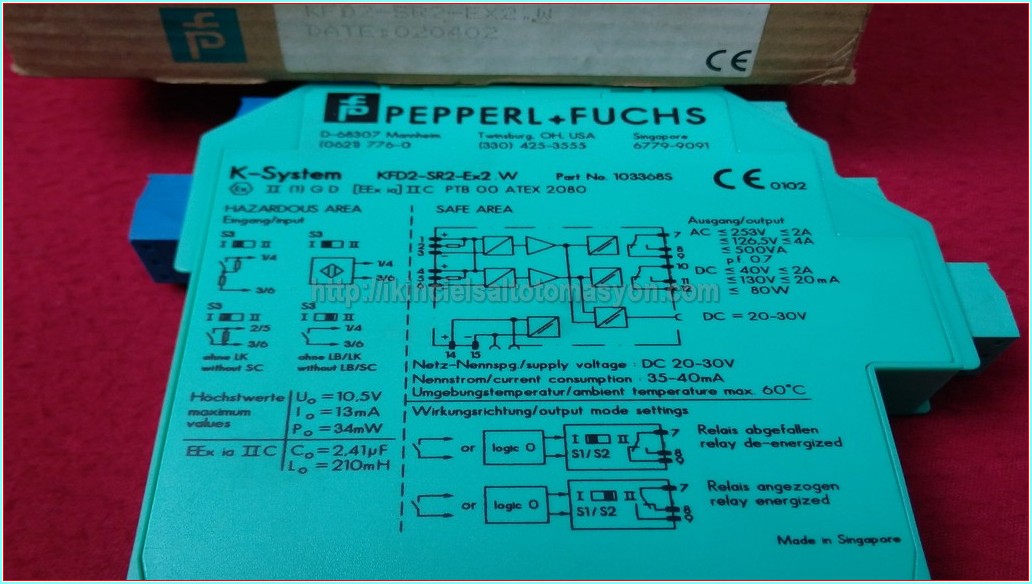 KFD2-SR2-EX2.W
DATE:020402
CE
PEPPERL+FUCHS
D-68307 Mannheim Twinsburg, OH, USA Singapore
(0621) 776-0 (330) 425-3555 6779-9091
K-System KFD2-SR2-Ex2.W Part No. 103368S CE 0102
Ex II (1) G D [EEx ia] IIC PTB 00 ATEX 2080
HAZARDOUS AREA
Eingang/input
S3 S3
I II I II
1/4 1/4
3/6 3/6
S3 S3
I II I II
2/5 1/4
3/6 3/6
ohne LK ohne LB/LK
without SC without LB/SC
SAFE AREA
1
2
3
4
5
6
7
8
9
10
11
12
14 15
Ausgang/output
AC ≤ 253V ≤ 2A
≤ 126,5V ≤ 4A
≤ 500VA
p.f. 0.7
DC ≤ 40V ≤ 2A
≤ 130V ≤ 20mA
≤ 80W
DC = 20-30V
http://ikincielsaltotomasyon.com
Netz-Nennspg./supply voltage : DC 20-30V
Nennstrom/current consumption : 35-40mA
Umgebungstemperatur/ambient temperature max. 60°C
Höchstwerte
maximum
values
Uo = 10,5V
Io = 13mA
Po = 34mW
EEx ia IIC
Co = 2,41µF
Lo = 210mH
Wirkungsrichtung/output mode settings
or logic 0 I II S1/S2 7 8 9
Relais abgefallen
relay de-energized
or logic 0 I II S1/S2 7 8 9
Relais angezogen
relay energized
Made in Singapore